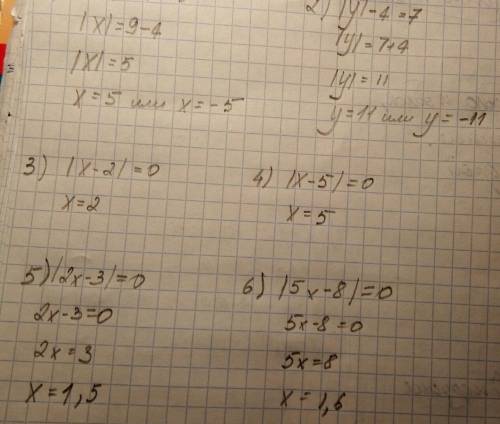 |x|=9-4
|x|=5
x=5 или x=-5
2) |y|-4=7
|y|=7+4
|y|=11
y=11 или y=-11
3) |x-2|=0
x=2
4) |x-5|=0
x=5
5) |2x-3|=0
2x-3=0
2x=3
x=1,5
6) |5x-8|=0
5x-8=0
5x=8
x=1,6